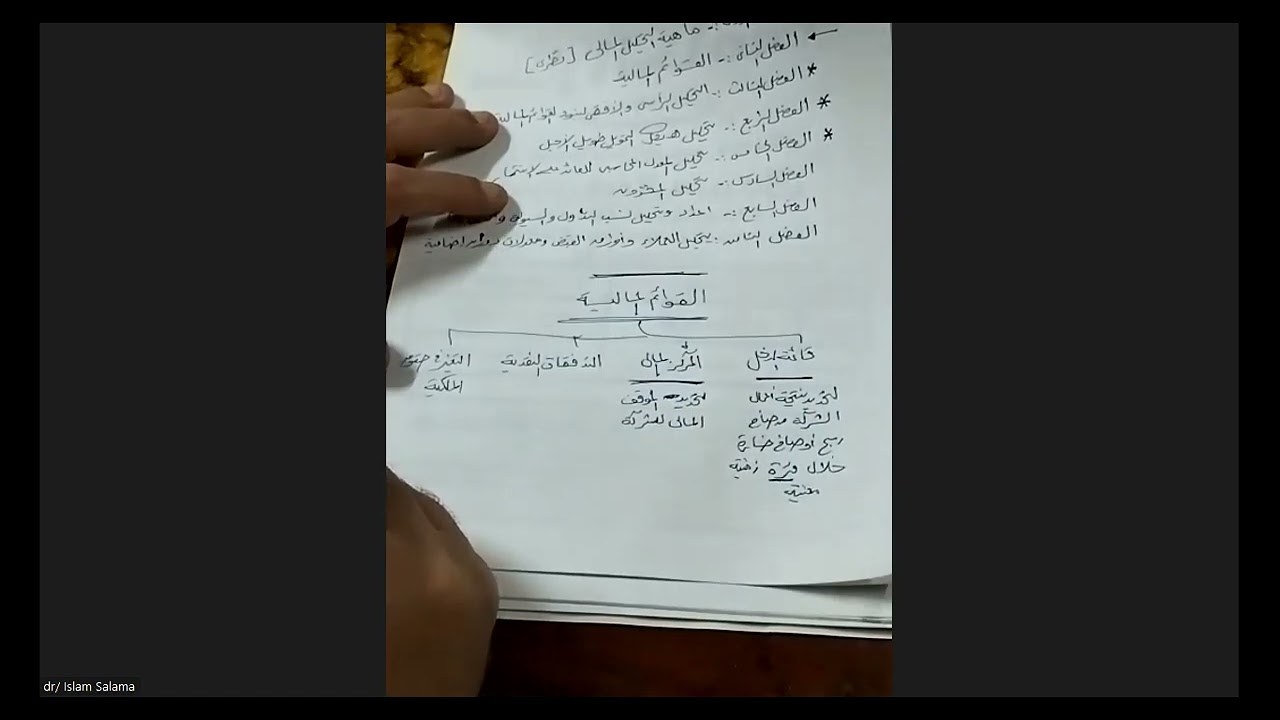 ماهية التحليل المالى [نظرى]
الفصل الثانى :- القوائم المالية
* الفصل الثالث :- التحليل الرأسى والأفقى لبنود القوائم المالية
* الفصل الرابع :- تحليل هيكل التمويل طويل الأجل
* الفصل الخامس :- تحليل المعدل المحاسبى للعائد على الاستثما
الفصل السادس :- تحليل المخزون
الفصل السابع :- اعداد وتحليل نسب التداول والسيولة
الفصل الثامن :- تحليل العملاء و القبض و اضافية
القوائم المالية
قائمة الدخل
لتحديد نتيجة أعمال
الشركة من صافى
ربح أو صافى خسارة
خلال فترة زمنية
معينة
المركز المالى
لتحديد الموقف
المالى للشركة
التدفقات النقدية
التغير فى حقوق
الملكية
dr/ Islam Salama